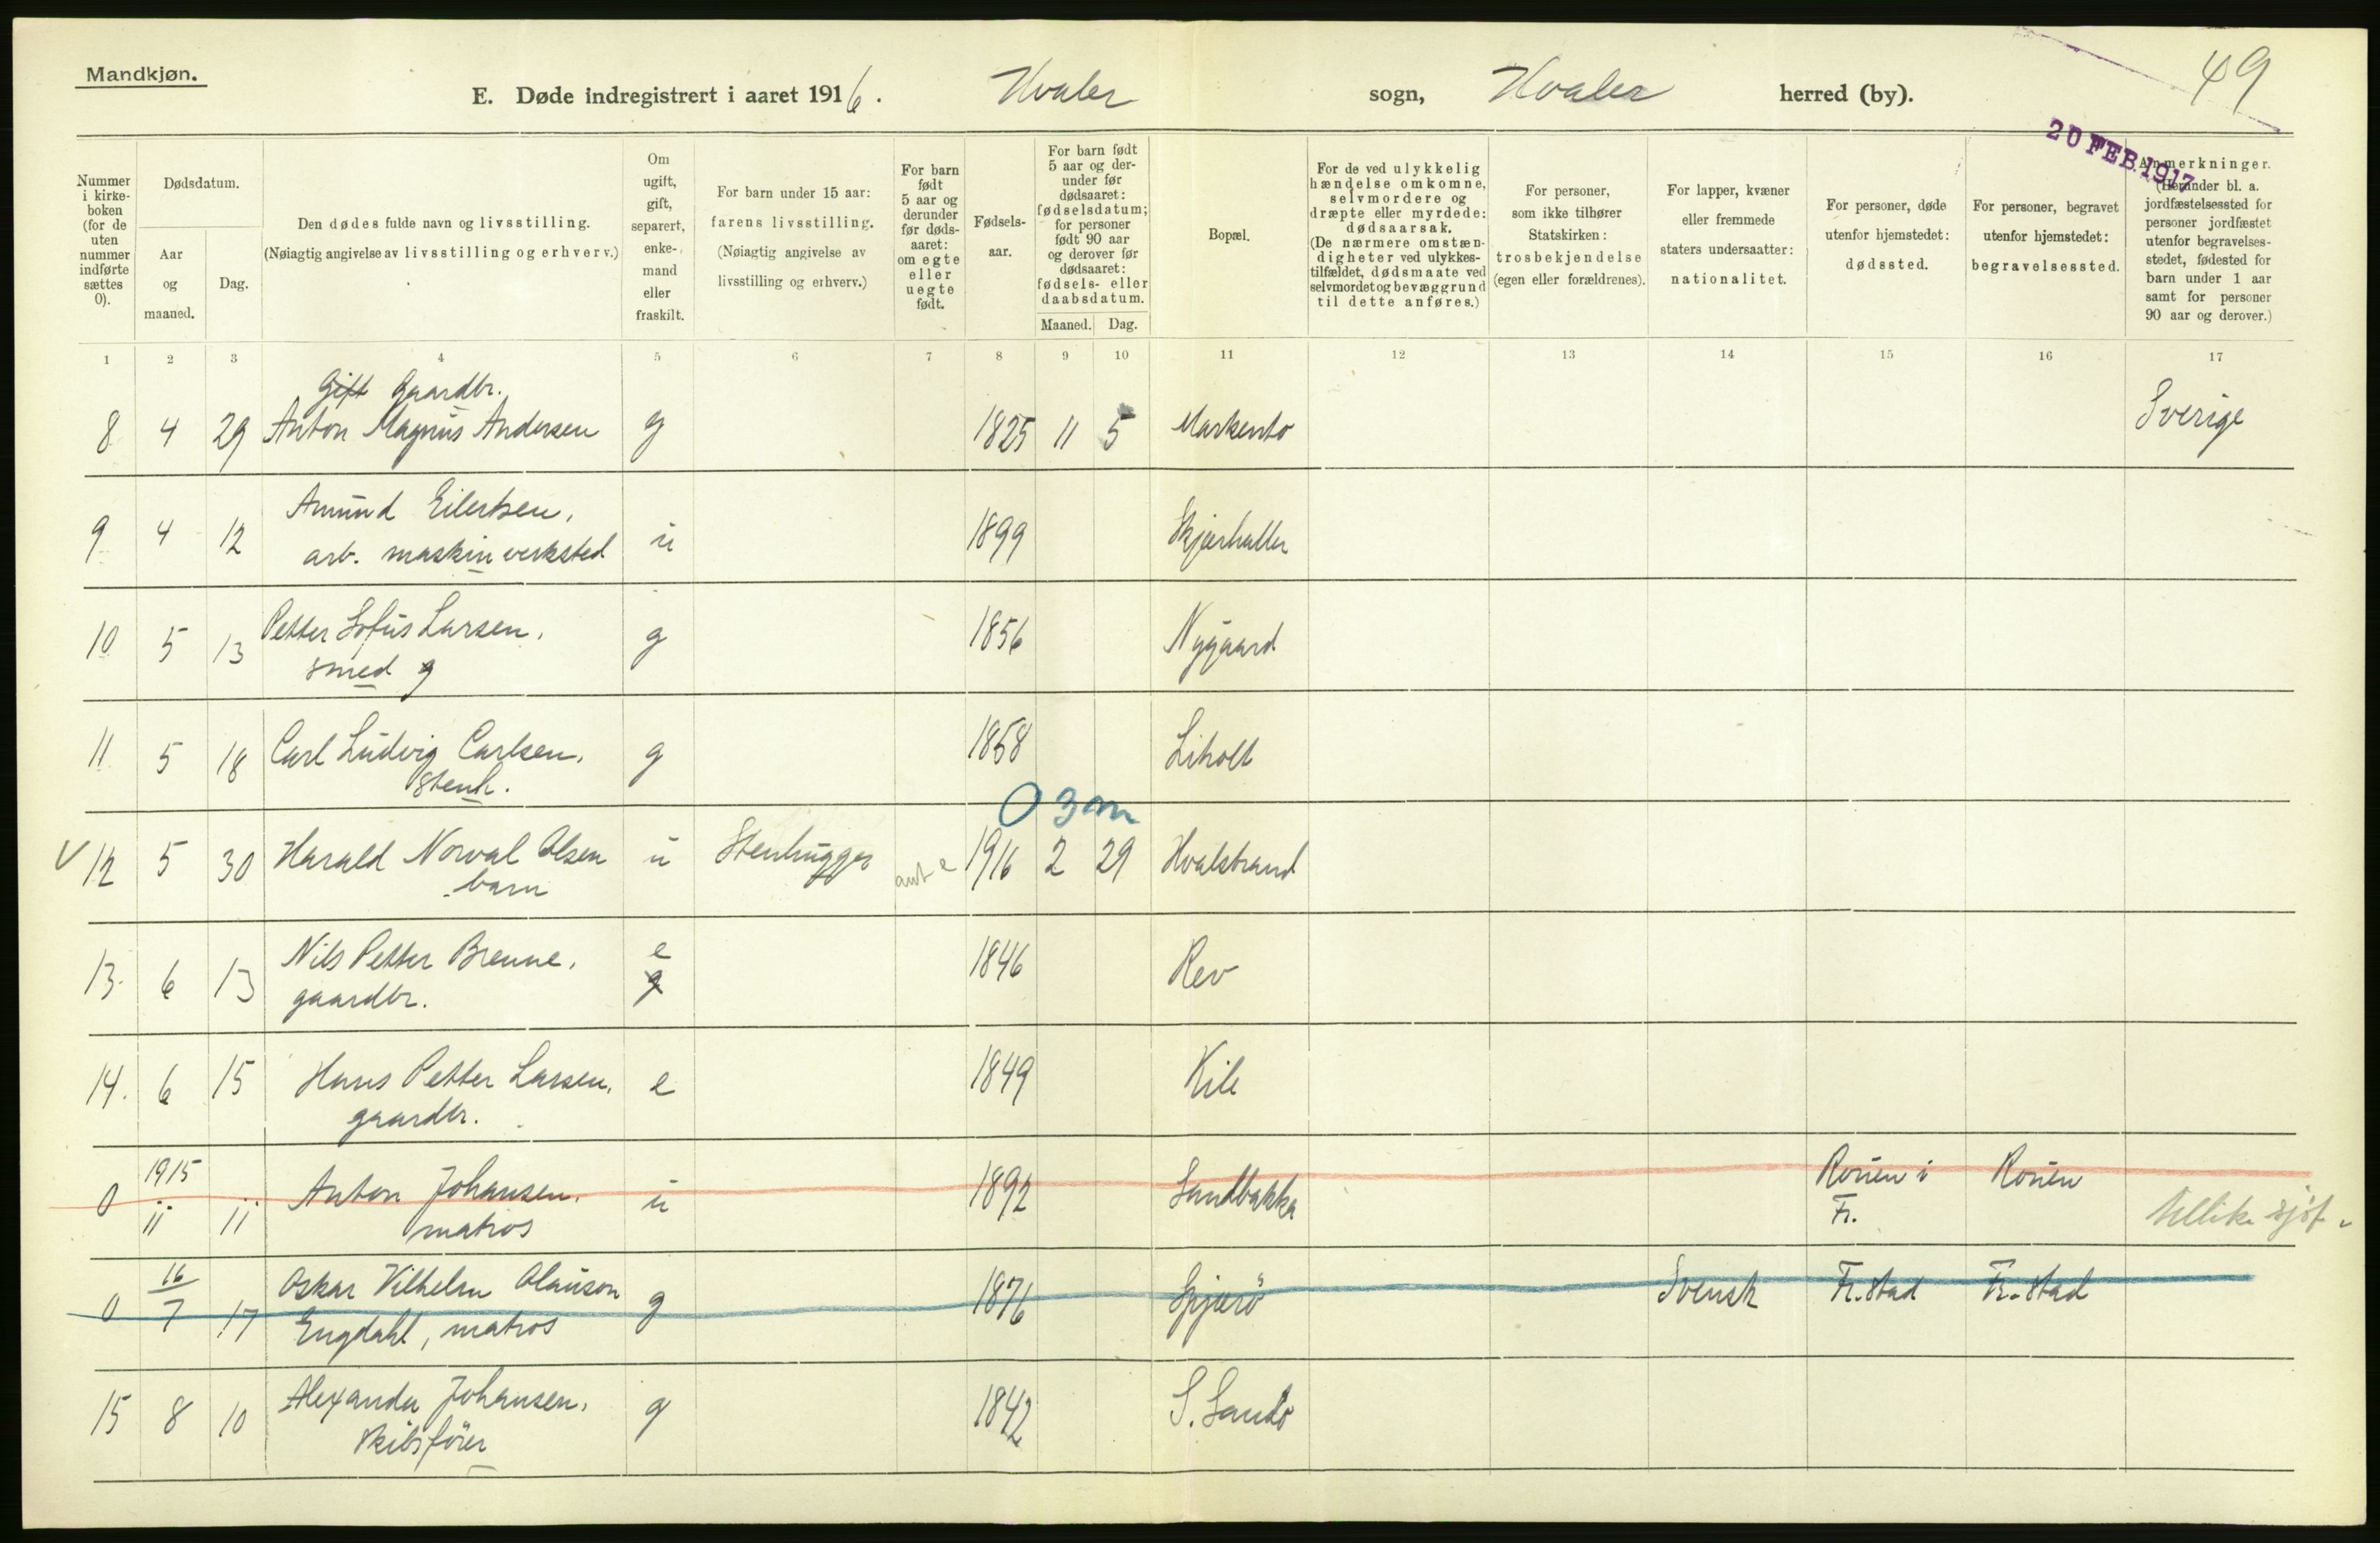 Mandkjøn.
E. Døde indregistrert i aaret 1916. Hvaler sogn, Hvaler herred (by).
49
20 FEB. 1917
Nummer i kirkeboken (for de uten nummer indførte sættes 0).
Dødsdatum.
Aar og maaned.
Dag.
Den dødes fulde navn og livsstilling.
(Nøiagtig angivelse av livsstilling og erhverv.)
Om ugift, gift, separert, enkemand eller fraskilt.
For barn under 15 aar: farens livsstilling.
(Nøiagtig angivelse av livsstilling og erhverv.)
For barn født 5 aar og derunder før dødsaaret: om egte eller uegte født.
Fødselsaar.
For barn født 5 aar og derunder før dødsaaret: fødselsdatum; for personer født 90 aar og derover før dødsaaret: fødsels- eller daabsdatum.
Maaned. Dag.
Bopæl.
For de ved ulykkelig hændelse omkomne, selvmordere og dræpte eller myrdede: dødsaarsak.
(De nærmere omstændigheter ved ulykkestilfældet, dødsmaate ved selvmordet og bevæggrund til dette anføres.)
For personer, som ikke tilhører Statskirken: trosbekjendelse (egen eller forældrenes).
For lapper, kvæner eller fremmede staters undersaatter: nationalitet.
For personer, døde utenfor hjemstedet: dødssted.
For personer, begravet utenfor hjemstedet: begravelsessted.
Anmerkninger.
(Herunder bl. a. jordfæstelsessted for personer jordfæstet utenfor begravelsesstedet, fødested for barn under 1 aar samt for personer 90 aar og derover.)
1 2 3 4 5 6 7 8 9 10 11 12 13 14 15 16 17
Gift Gaardbr.
8 4 29 Anton Magnus Andersen g 1825 11 5 Markento Sverige
9 4 12 Amund Eilertsen, u 1899 Skjærhallen
arb. maskinverksted
10 5 13 Petter Sofus Larsen, g 1856 Nygaard
smed g
11 5 18 Carl Ludvig Carlsen, g 1858 Liholt
Stenh.
0 3 m
V 12 5 30 Harald Norval Olsen u Stenhugger e 1916 2 29 Hvalstrand
barn
13. 6 13 Nils Petter Brenne, e 1846 Rev
gaardbr. g
14. 6 15 Hans Petter Larsen, e 1849 Kile
gaardbr.
1915
0 11 11 Anton Johansen, u 1892 Sandbakka Rouen i Fr. Rouen
matros
0 16/7 17 Oskar Vilhelm Olauson g 1876 Spjærö Svensk Fr.stad Fr.stad
Engdahl, matros
15 8 10 Alexander Johansen, g 1842 S. Sandö
Skibsförer